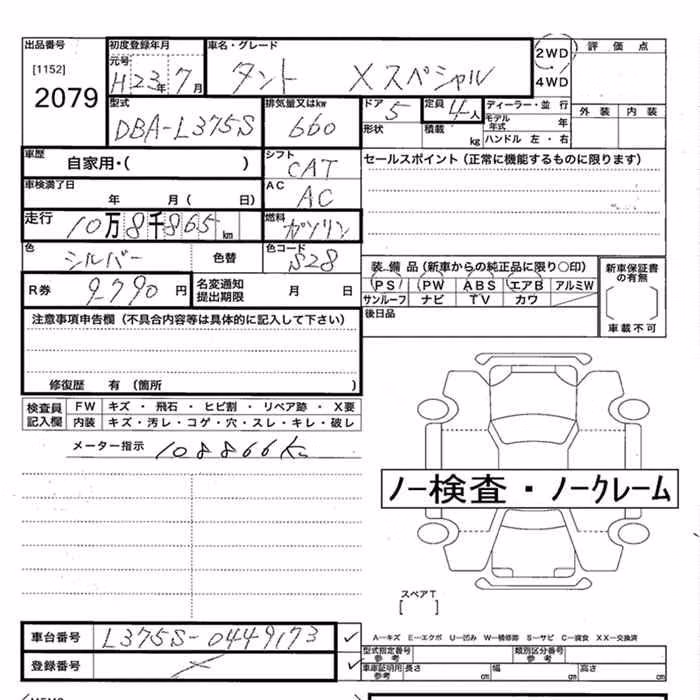 出品番号 初度登録年月 車名・グレード 2WD 評価点
[1152] 元号 H23年7月 タント Xスペシャル 4WD
2079 型式 排気量又はkw ドア 5 定員 4人 ディーラー・並行 外装 内装
DBA-L375S 660 形状 積載 kg モデル年式 年
ハンドル 左・右
車歴 自家用・( ) シフト CAT セールスポイント(正常に機能するものに限ります)
車検満了日 年 月( 日) AC AC
走行 10万8千865km 燃料 ガソリン
色 シルバー 色替 色コード S28
装備品(新車からの純正品に限り〇印) 新車保証書の有無
R券 9,790円 名変通知提出期限 月 日 PS PW ABS エアB アルミW
サンルーフ ナビ TV カワ
注意事項申告欄(不具合内容等は具体的に記入して下さい) 後日品 車載不可
修復歴 有(箇所 )
検査員記入欄 FW キズ・飛石・ヒビ割・リペア跡・X要
内装 キズ・汚レ・コゲ・穴・スレ・キレ・破レ
メーター指示 108866K
ノー検査・ノークレーム
スペアT
[ ]
車台番号 L375S-0449173 ✓ A-キズ E-エクボ U-凹み W-補修跡 S-サビ C-腐食 XX-交換済
型式指定番号 参考 類別区分番号 参考
登録番号 ✓ 車庫証明用 参考 長さ cm 幅 cm 高さ cm